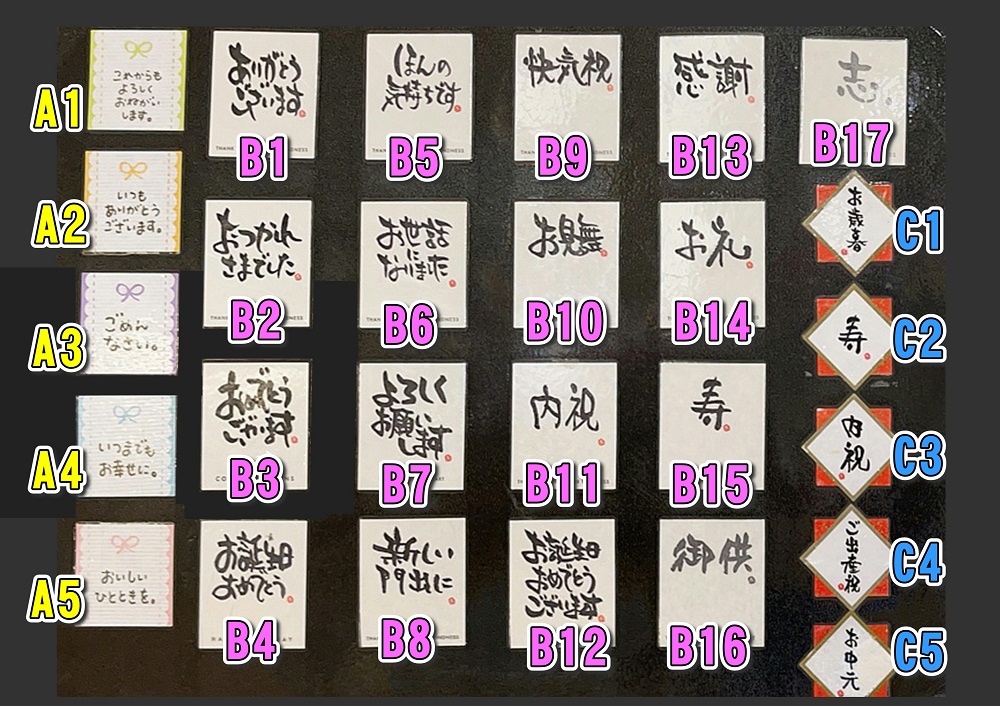 これからも
よろしく
おねがい
します。
A1
いつも
ありがとう
ございます。
A2
ごめん
なさい。
A3
いつまでも
お幸せに。
A4
おいしい
ひとときを。
A5
ありがとう
ございます
B1
おつかれ
さまでした
B2
おめでとう
ございます
B3
お誕生日
おめでとう
B4
ほんの
気持ちです
B5
お世話に
なりました
B6
よろしく
お願いします
B7
新しい
門出に
B8
快気祝
B9
お見舞
B10
内祝
B11
お誕生日
おめでとう
ございます
B12
感謝
B13
お礼
B14
寿
B15
御供
B16
志
B17
お歳暮
C1
寿
C2
内祝
C3
ご出産祝
C4
お中元
C5